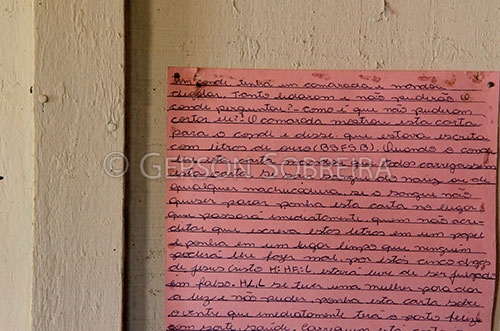 um conde tinha um camarada e mandou
degolar. Tanto lidaram e não puderão. O
conde perguntou? - como é que não puderam
cortar ele? O camarada mostrou esta carta
para o conde e disse: que estava escrita
com litros de ouro (BSFSB). Quando o conde
esta carta que todos carregassem
esta carta se sair sangue do nariz ou de
© GERSON SOBREIRA
qualquer machucadura se o sangue não
quiser parar ponha esta carta no lugar e
que passará imediatamente quem não acre-
ditar que escreva estas letras em um papel
e ponha em um lugar limpo que ninguém
poderá lhe fazer mal, por estas cinco
de jesus cristo H: HF=L estará livre de ser julgado
em falso. HL,L se tiver uma mulher para dar
a luz e não puder, ponha esta carta sobre
o ventre que imediatamente terá o parto feliz e
com sorte saúde. Carregar esta carta